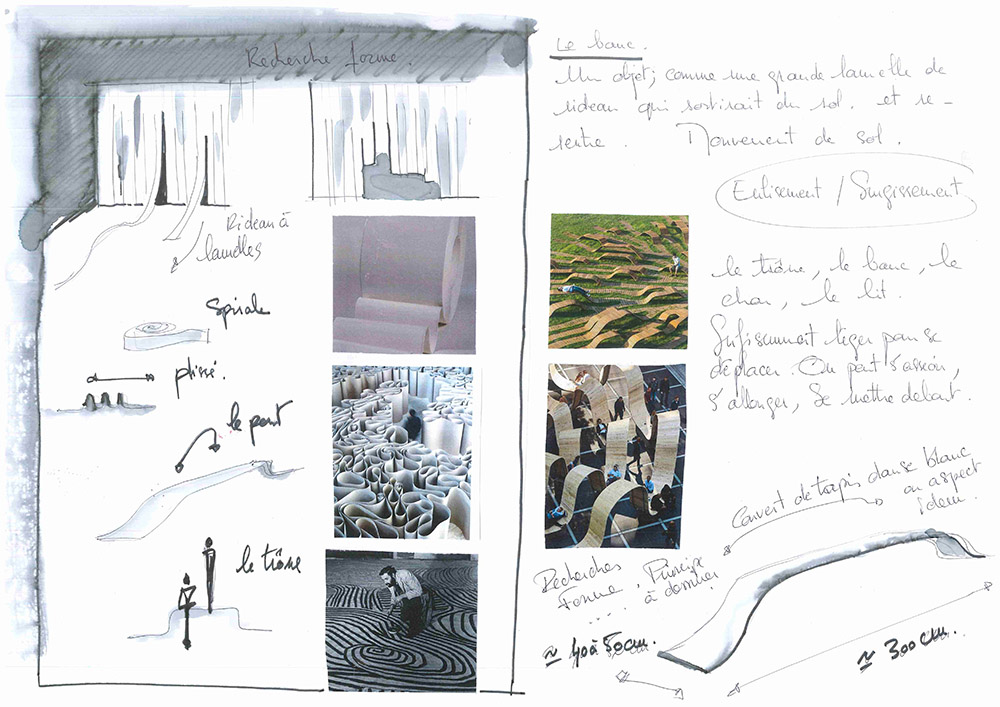 Recherche forme.
Rideau à
lamelles
Spirale
plissé.
le pont
le trône
Le banc.
Un objet, comme une grande lamelle de
rideau qui sortirait du sol. et re-
rentre. Mouvement de sol.
Enlisement / Surgissement
le trône, le banc, le
char, le lit.
Suffisamment léger pour se
déplacer. On peut s'assoir,
s'allonger, se mettre debout.
Couvert de tapis danse blanc
ou aspect
idem.
Recherches
Forme
Principe
.... à donner
≈ 40 à 50cm.
≈ 300cm.